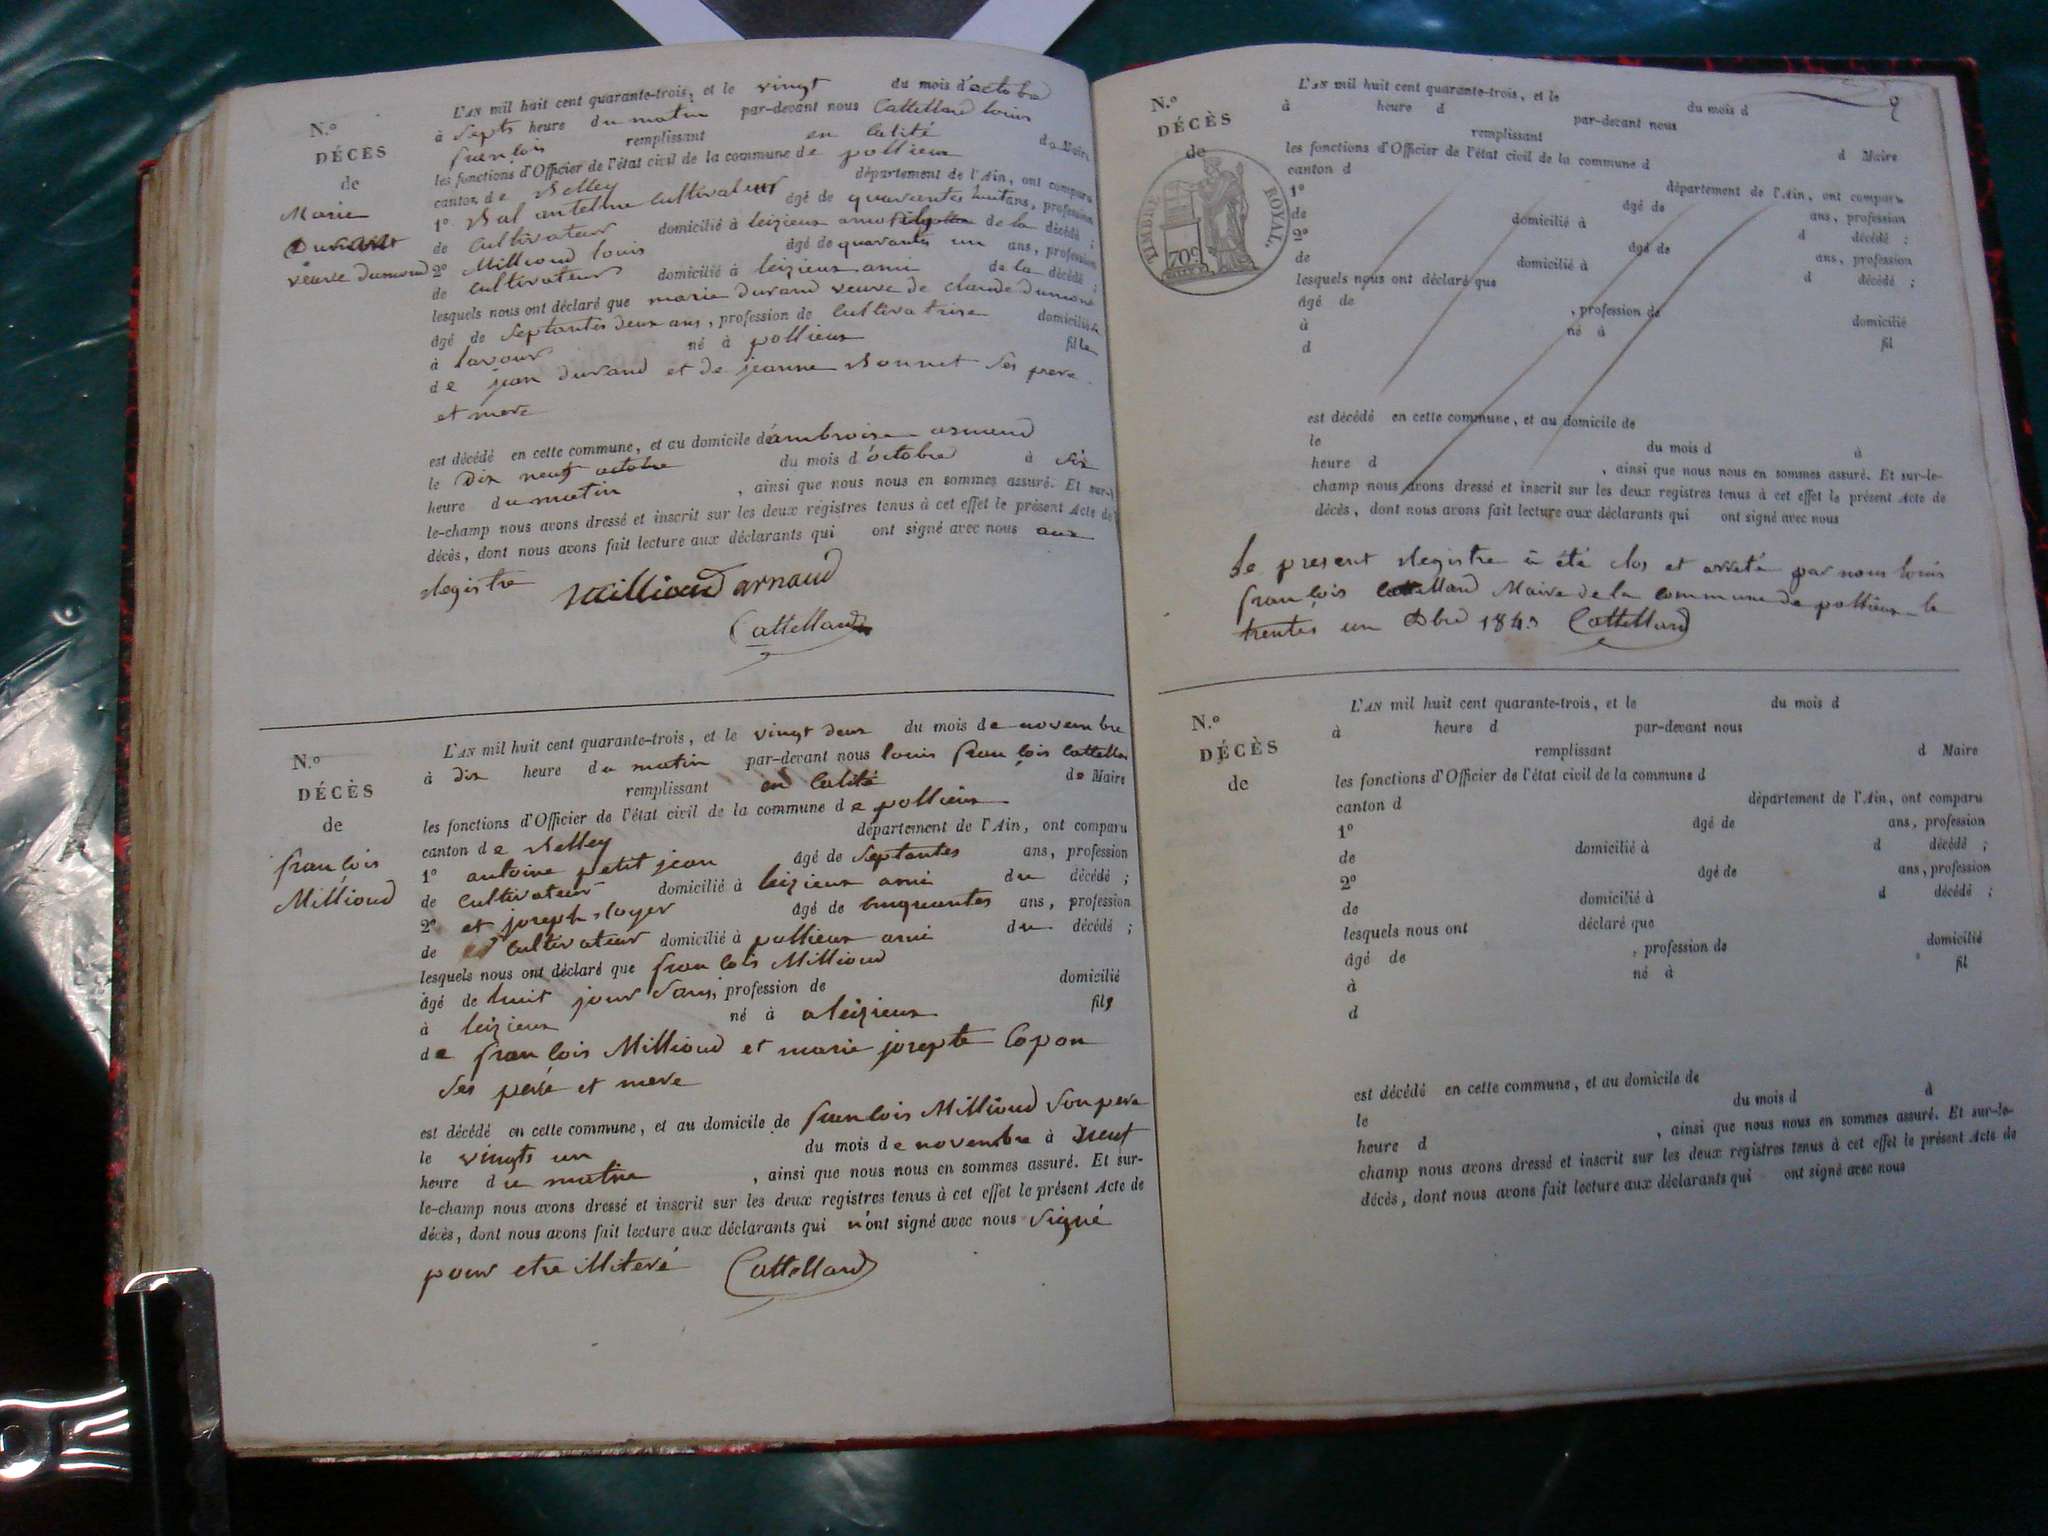 N.º
DÉCÈS
de
Marie
Durand
veuve dumond
L'AN mil huit cent quarante-trois, et le vingt du mois d'octobre
à septs heure du matin par-devant nous Cattelland louis
francois remplissant en calité de Maire
les fonctions d'Officier de l'état civil de la commune de pollieux
canton de Belley département de l'Ain, ont comparu
1º Bal antelme Cultivateur âgé de quarantes huit ans, profession
de Cultivateur domicilié à leizieux ami de la décédé ;
2º Millioud louis âgé de quarantes un ans, profession
de Cultivateur domicilié à leizieux ami de la décédé ;
lesquels nous ont déclaré que marie durand veuve de claude dumond
âgé de septantes deux ans, profession de Cultivatrise domicilié
à lavour né à pollieux fille
de jean durand et de jeanne Bonnet ses pere
et mere
est décédé en cette commune, et au domicile d'ambroise
le dix neuf octobre du mois d'octobre à six
heure du matin , ainsi que nous nous en sommes assuré. Et sur-
le-champ nous avons dressé et inscrit sur les deux registres tenus à cet effet le présent Acte de
décès, dont nous avons fait lecture aux déclarants qui ont signé avec nous aux
Registre Millioud arnaud
Cattelland
N.º
DÉCÈS
de
francois
Millioud
L'AN mil huit cent quarante-trois, et le vingt deux du mois de novembre
à dix heure du matin par-devant nous louis francois Cattelland
remplissant en calité de Maire
les fonctions d'Officier de l'état civil de la commune de pollieux
canton de Belley département de l'Ain, ont comparu
1º antoine petit jean âgé de septantes ans, profession
de Cultivateur domicilié à leizieux ami du décédé ;
2º et joseph Royer âgé de cinquantes ans, profession
de cultivateur domicilié à pollieux ami du décédé ;
lesquels nous ont déclaré que francois Millioud
âgé de huit jour sans, profession de domicilié
à leizieux né à a leizieux fils
de francois Millioud et marie josepte Copon
ses peré et mere
est décédé en cette commune, et au domicile de francois Millioud son pere
le vingts un du mois de novembre à neuf
heure du matin , ainsi que nous nous en sommes assuré. Et sur-
le-champ nous avons dressé et inscrit sur les deux registres tenus à cet effet le présent Acte de
décès, dont nous avons fait lecture aux déclarants qui n'ont signé avec nous signé
pour etre illiteré Cattelland
N.º
DÉCÈS
de
TIMBRE ROYAL.
70 c
L'AN mil huit cent quarante-trois, et le du mois d
à heure d par-devant nous
remplissant d Maire
les fonctions d'Officier de l'état civil de la commune d
canton d département de l'Ain, ont comparu
1º âgé de ans, profession
de domicilié à d décédé ;
2º âgé de ans, profession
de domicilié à d décédé ;
lesquels nous ont déclaré que
âgé de , profession de domicilié
à né à fil
d
est décédé en cette commune, et au domicile de
le du mois d à
heure d , ainsi que nous nous en sommes assuré. Et sur-le-
champ nous avons dressé et inscrit sur les deux registres tenus à cet effet le présent Acte de
décès, dont nous avons fait lecture aux déclarants qui ont signé avec nous
Le present Registre à été clos et arreté par nous louis
francois Cattelland Maire de la commune de pollieux le
trentes un Dbre 1843 Cattelland
N.º
DÉCÈS
de
L'AN mil huit cent quarante-trois, et le du mois d
à heure d par-devant nous
remplissant d Maire
les fonctions d'Officier de l'état civil de la commune d
canton d département de l'Ain, ont comparu
1º âgé de ans, profession
de domicilié à d décédé ;
2º âgé de ans, profession
de domicilié à d décédé ;
lesquels nous ont déclaré que
âgé de , profession de domicilié
à né à fil
d
est décédé en cette commune, et au domicile de
le du mois d à
heure d , ainsi que nous nous en sommes assuré. Et sur-le-
champ nous avons dressé et inscrit sur les deux registres tenus à cet effet le présent Acte de
décès, dont nous avons fait lecture aux déclarants qui ont signé avec nous